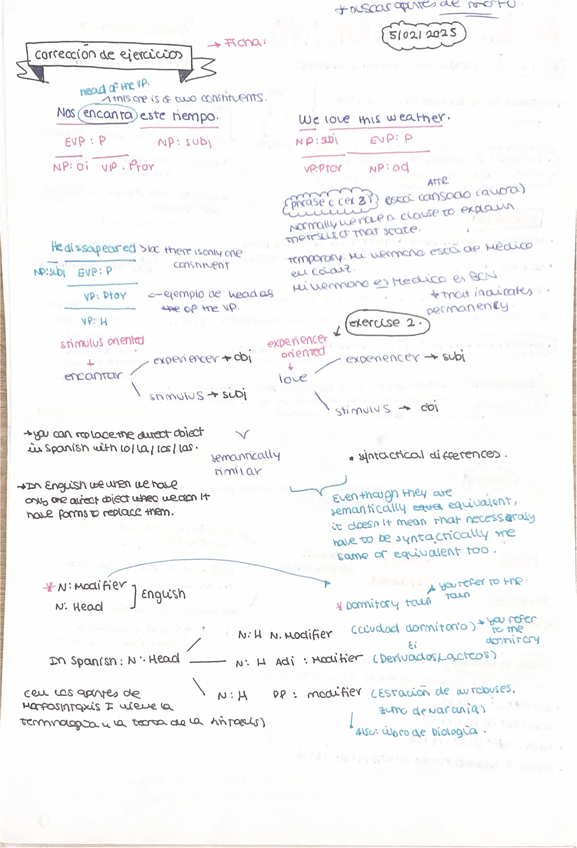 + buscar apuntes de
5/02/2025
corrección de ejercicios
→ Ficha 1
head of the VP.
→ this one is of two constituents.
Nos encanta este tiempo.
EVP: P NP: subj
NP: Oi VP: Ptor
We love this weather.
NP: subj EVP: P
VP: Ptor NP: Od
ATTR
phrase c (ej 3) está cansado (ahora)
Normally we have a clause to explain
the result that state.
Temporary. Mi hermano está de Médico
en Cádiz.
Mi hermano es Medico es BCN
↳ that indicates
permanency.
He dissapeared > bc there is only one
constituent
NP: subj EVP: P
VP: Ptor ← ejemplo de head as
the of the VP.
VP: H
exercise 2.
stimulus oriented
encantar
experiencer → obj
stimulus → subj
experiencer
oriented
love
experiencer → subj
stimulus → obj
→ you can replace the direct object
in Spanish with lo/la/los/las.
semantically
similar
• syntactical differences.
→ In English we when we have
only one direct object when we don't
have forms to replace them.
Eventhough they are
semantically equivalent,
it doesn't mean that necessaraly
have to be syntactically the
same or equivalent too.
* N: Modifier
N: Head
English
* Dormitory town
↗ you refer to the
town
In Spanish: N: Head
N: H N. Modifier (Ciudad dormitorio) → you refer
to the
dormitory
N: H Adj: Modifier (Derivados Lacteos)
N: H PP: modifier (Estación de autobuses,
zumo de naranja)
Also: libro de biología.
(en los apuntes de
Morfosintaxis I viene la
terminología y la teoría de la sintaxis)